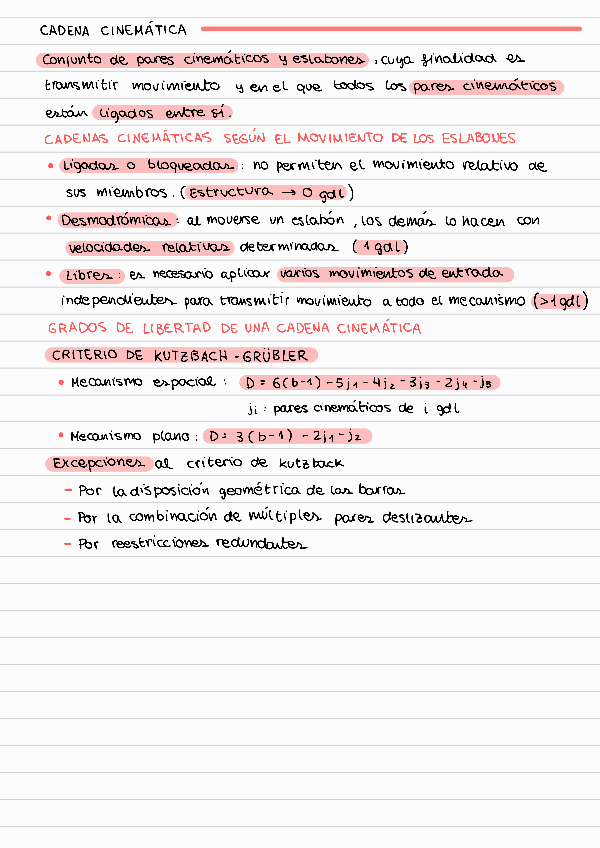 CADENA CINEMÁTICA
Conjunto de pares cinemáticos y eslabones, cuya finalidad es
transmitir movimiento y en el que todos los pares cinemáticos
están ligados entre sí.
CADENAS CINEMÁTICAS SEGÚN EL MOVIMIENTO DE LOS ESLABONES
• Ligadas o bloqueadas: no permiten el movimiento relativo de
sus miembros. (Estructura → 0 gdl)
• Desmodrómicas: al moverse un eslabón, los demás lo hacen con
velocidades relativas determinadas (1 gdl)
• Libres: es necesario aplicar varios movimientos de entrada
independientes para transmitir movimiento a todo el mecanismo (>1gdl)
GRADOS DE LIBERTAD DE UNA CADENA CINEMÁTICA
CRITERIO DE KUTZBACH - GRÜBLER
• Mecanismo espacial: D = 6(b-1) - 5j₁ - 4j₂ - 3j₃ - 2j₄ - j₅
ji: pares cinemáticos de i gdl
• Mecanismo plano: D = 3(b-1) - 2j₁ - j₂
Excepciones al criterio de kutzback
- Por la disposición geométrica de las barras
- Por la combinación de múltiples pares deslizantes
- Por reestricciones redundantes